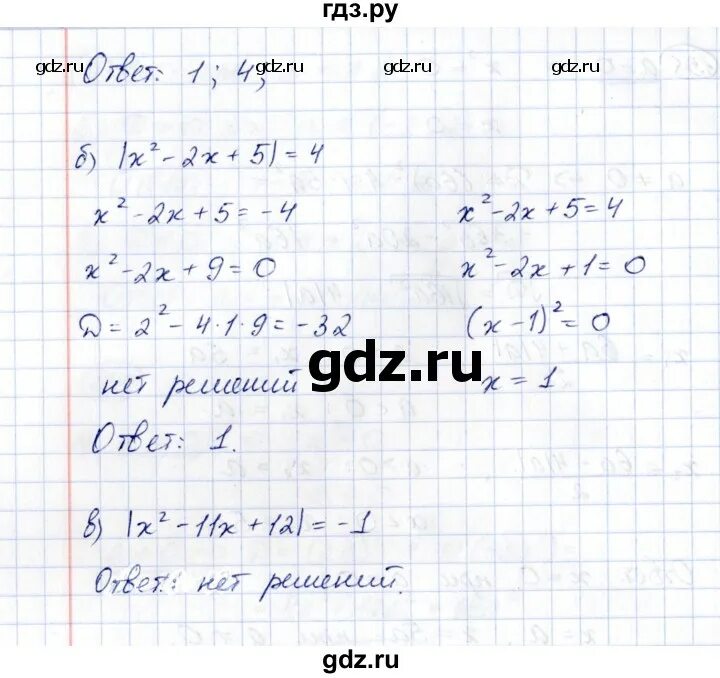 гдз.ру
gdz.ru gdz.ru gdz.ru gdz.ru
Ответ: 1; 4;
б) |x² - 2x + 5| = 4
x² - 2x + 5 = -4 x² - 2x + 5 = 4
x² - 2x + 9 = 0 x² - 2x + 1 = 0
D = 2² - 4·1·9 = -32 (x - 1)² = 0
нет решений x = 1
gdz.ru
Ответ: 1.
в) |x² - 11x + 12| = -1
Ответ: нет решений.
gdz.ru